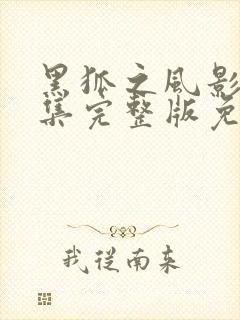 黑狐之风影
集完整版免
我從南来